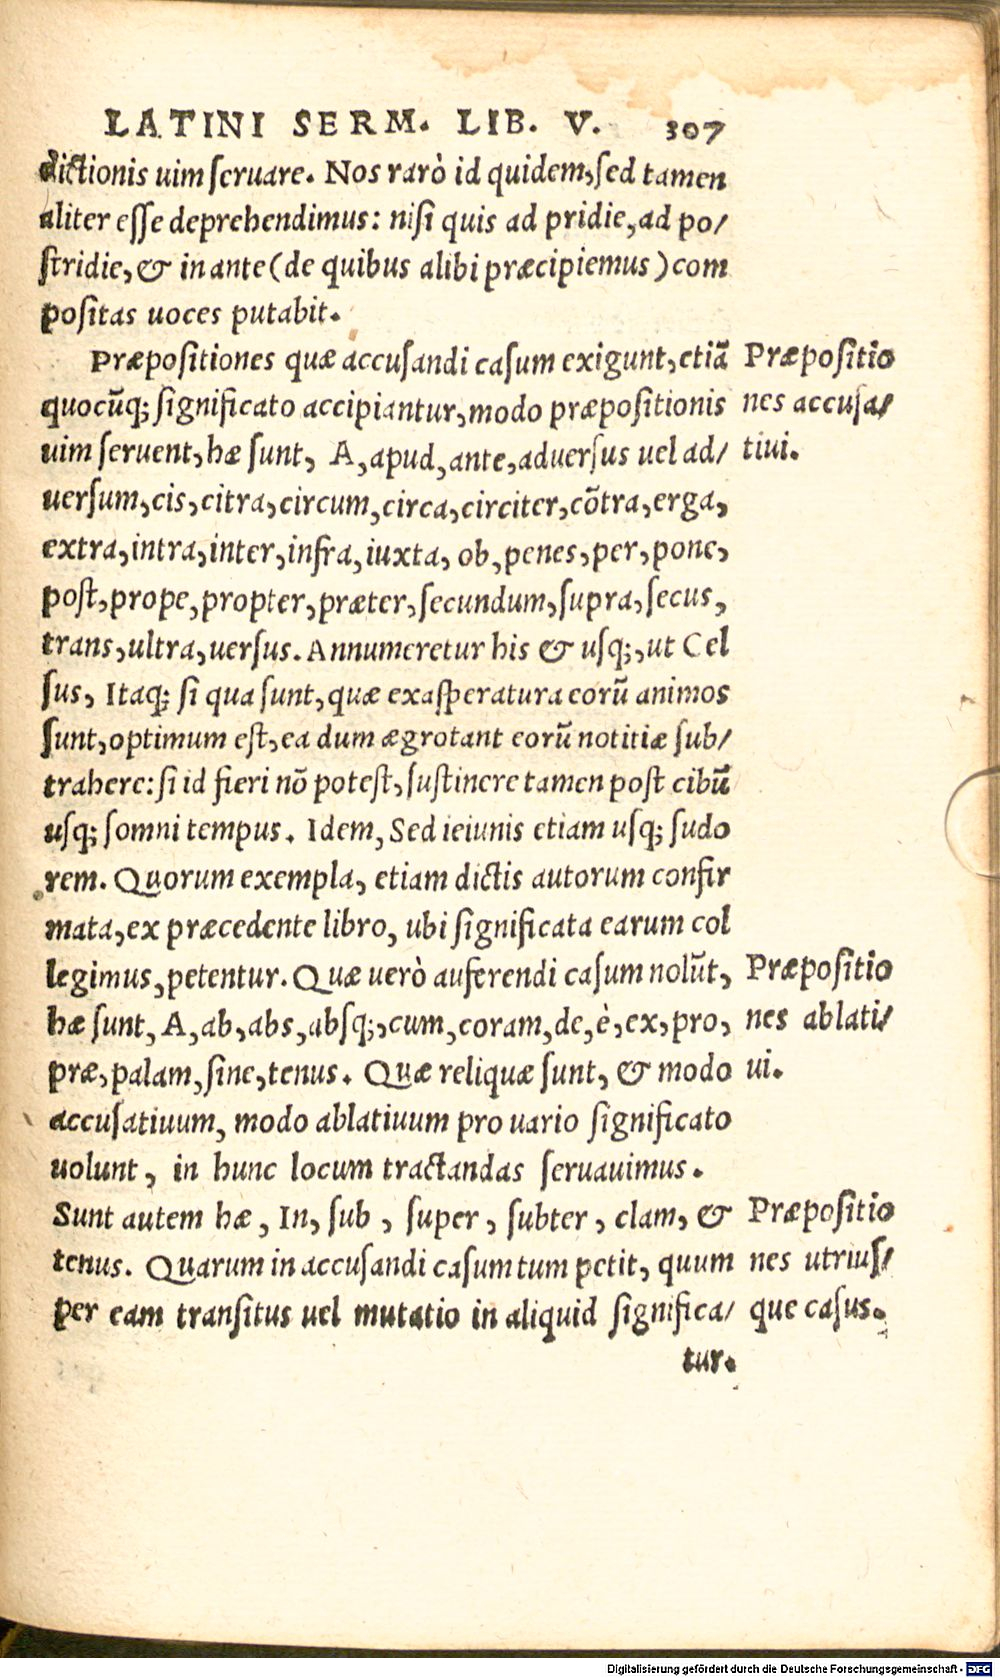 LATINI SERM. LIB. V. 307
dictionis uim seruare. Nos rarò id quidem, sed tamen
aliter esse deprehendimus: nisi quis ad pridie, ad po/
stridie, & in ante (de quibus alibi præcipiemus) com
positas uoces putabit.
Præpositiones quæ accusandi casum exigunt, etiã
quocũq; significato accipiantur, modo præpositionis
uim seruent, hæ sunt, A, apud, ante, aduersus uel ad/
uersum, cis, citra, circum, circa, circiter, cõtra, erga,
extra, intra, inter, infra, iuxta, ob, penes, per, pone,
post, prope, propter, præter, secundum, supra, secus,
trans, ultra, uersus. Annumeretur his & usq;, ut Cel
sus, Itaq; si qua sunt, quæ exasperatura eorũ animos
sunt, optimum est, ea dum ægrotant eorũ notitiæ sub/
trahere: si id fieri nõ potest, sustinere tamen post cibũ
usq; somni tempus. Idem, Sed ieiunis etiam usq; sudo
rem. Quorum exempla, etiam dictis autorum confir
mata, ex præcedente libro, ubi significata earum col
legimus, petentur. Quæ uerò auferendi casum nolũt,
hæ sunt, A, ab, abs, absq;, cum, coram, de, è, ex, pro,
præ, palam, sine, tenus. Quæ reliquæ sunt, & modo
accusatiuum, modo ablatiuum pro uario significato
uolunt, in hunc locum tractandas seruauimus.
Sunt autem hæ, In, sub, super, subter, clam, &
tenus. Quarum in accusandi casum tum petit, quum
per eam transitus uel mutatio in aliquid significa/
tur.
Præpositio
nes accusa/
tiui.
Præpositio
nes ablati/
ui.
Præpositio
nes utrius/
que casus.
Digitalisierung gefördert durch die Deutsche Forschungsgemeinschaft - DFG